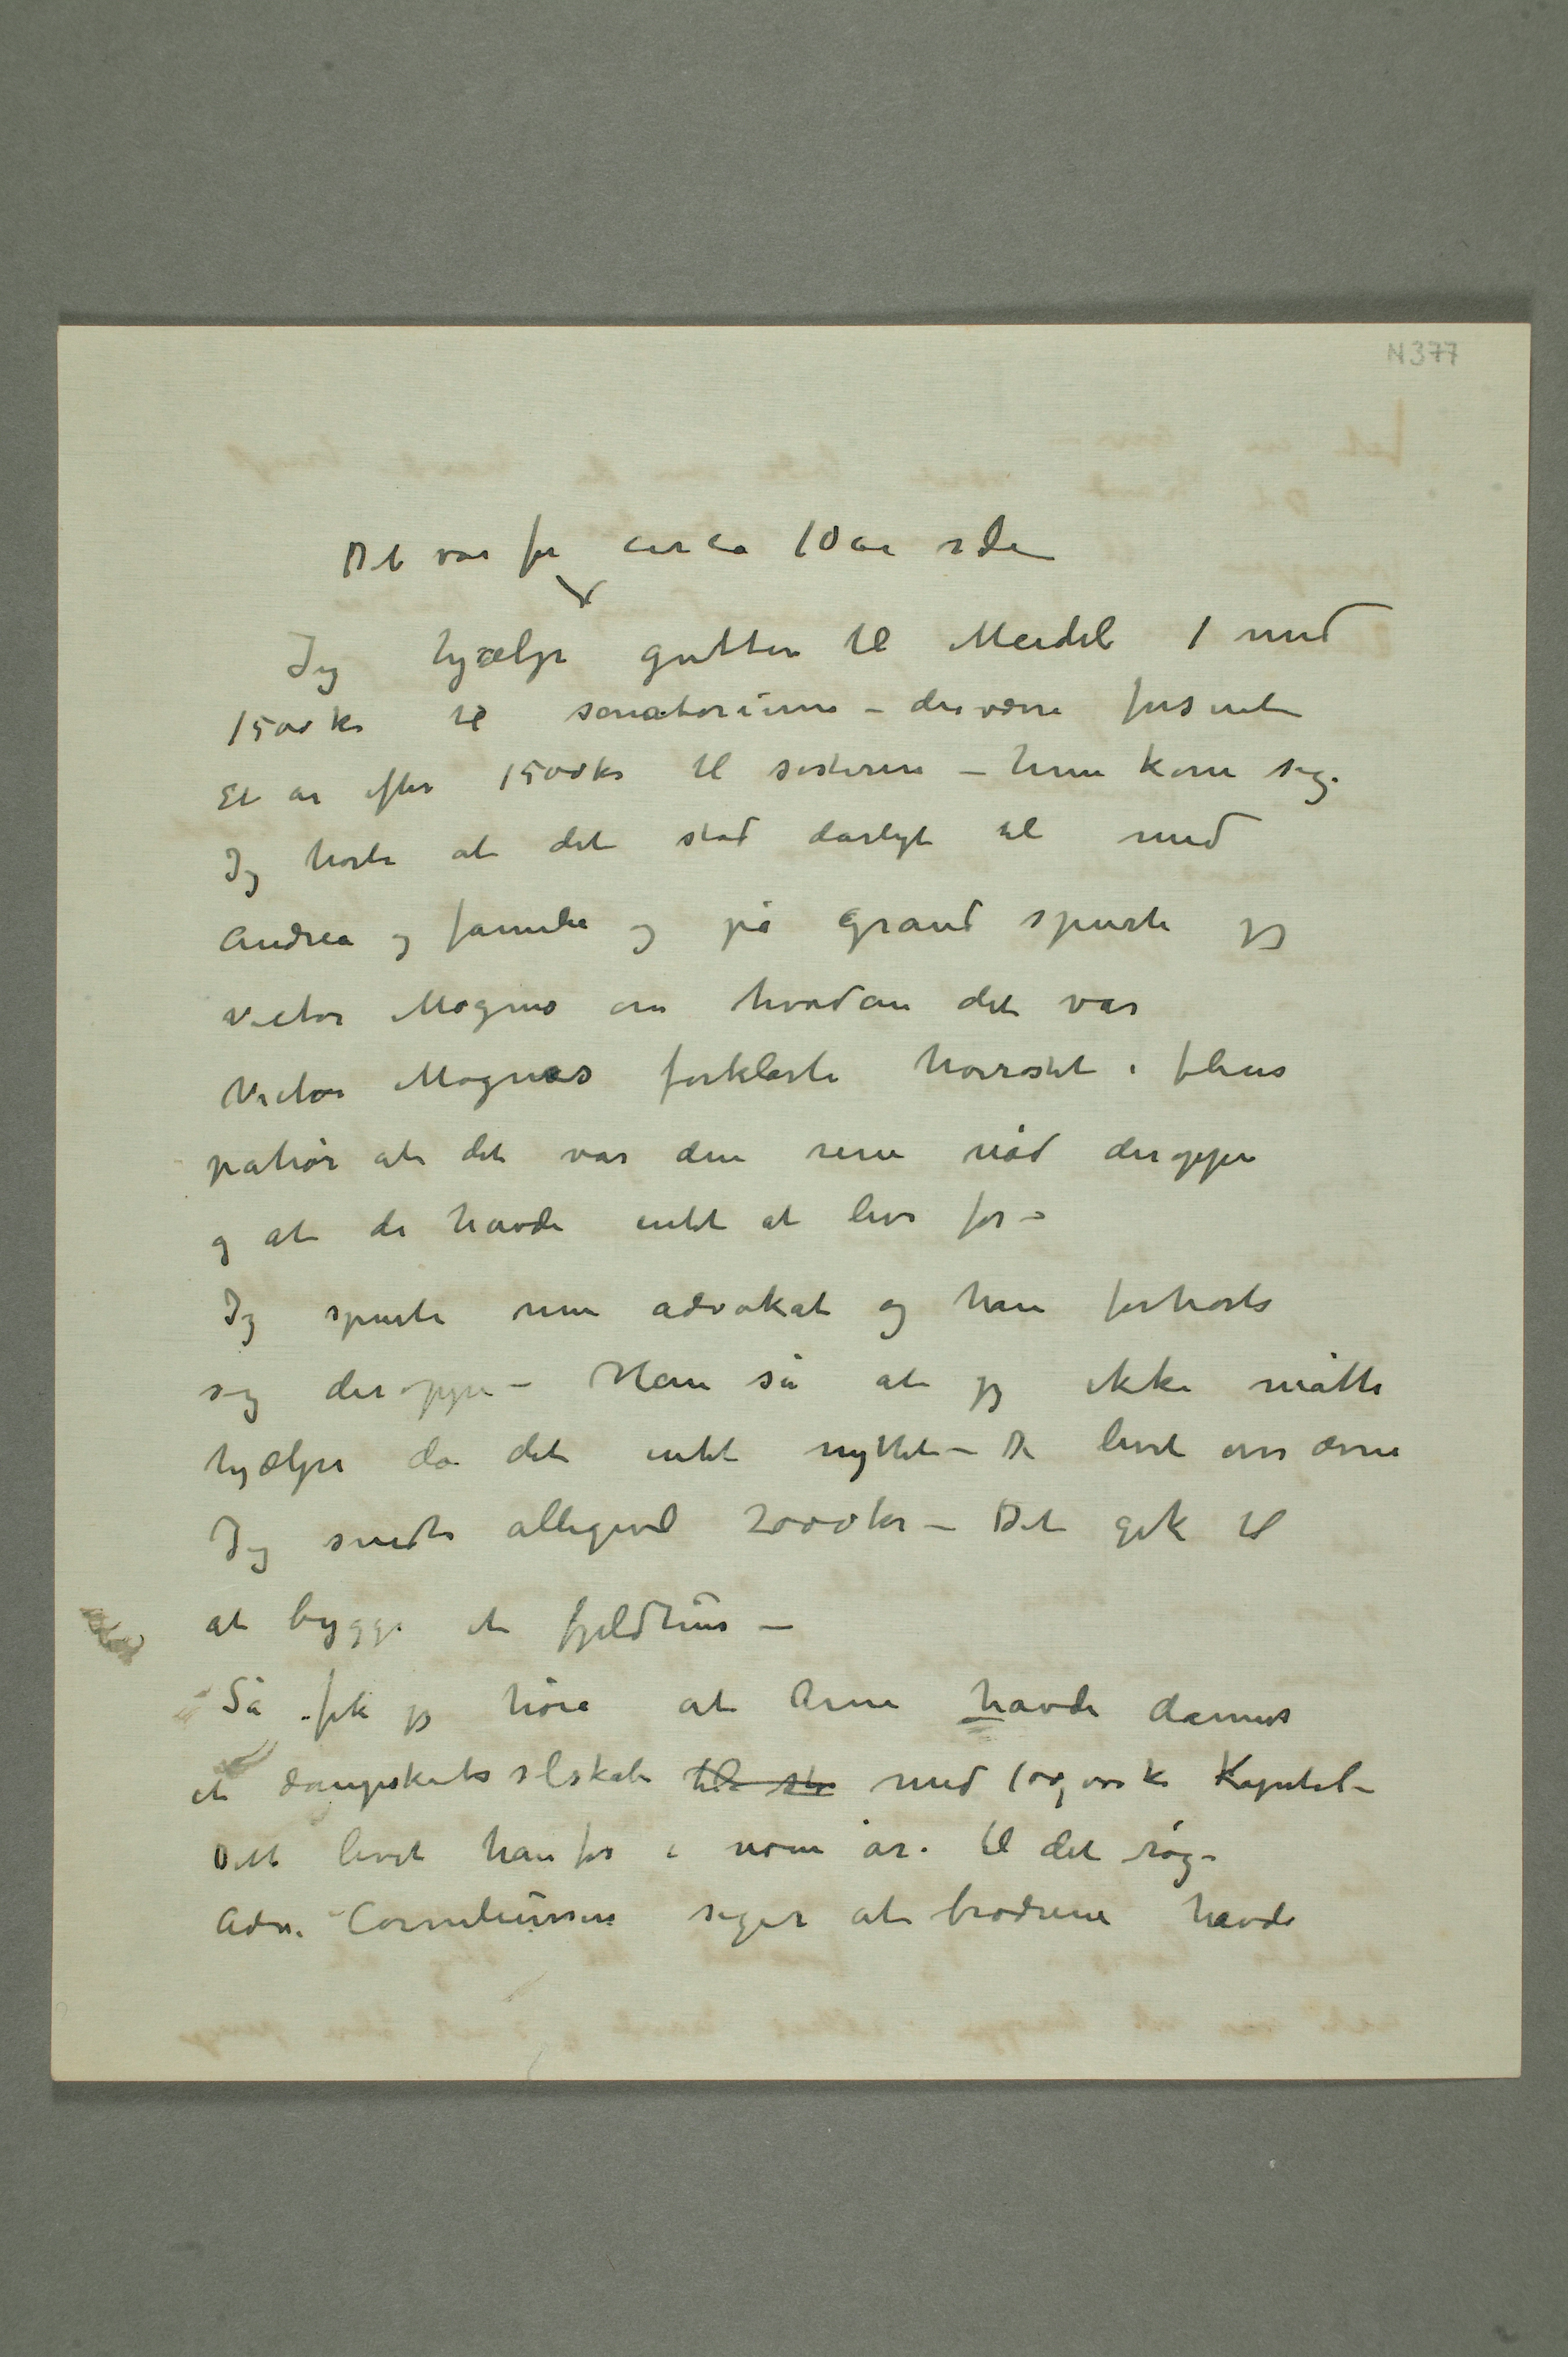 N 377
Det var for circa 10 år siden
Jeg hjælpe gutten til Meidel 1 med
1500 kr til sanatorium – desværre forsent
Et år efter 1500 kr til søsteren – hun kom sig.
Jeg hørte at det stod dårligt til med
Andrea og familie og på Grand spurte jeg
Victor Mogens om hvodan det var
Victor Mogens forklarte høirøstet i fleres
påhør at det var den rene nød deroppe
og at de havde intet at leve for –
Jeg spurte min advokat og han forhørte
sig deroppe – Han sa at jeg ikke måtte
hjælpe da det intet nyttet – De levet over ævne
Jeg sendte alligevel 2000 kr – Det gik til
at bygge et fjeldhus –
Så fik jeg høre at Arne havde dannet
et dampskibsselskab til st med 100,000 kr Kapital –
Dette levet han for i noen år. til det røg –
Adv. Corneliussen siger at brødrene havde